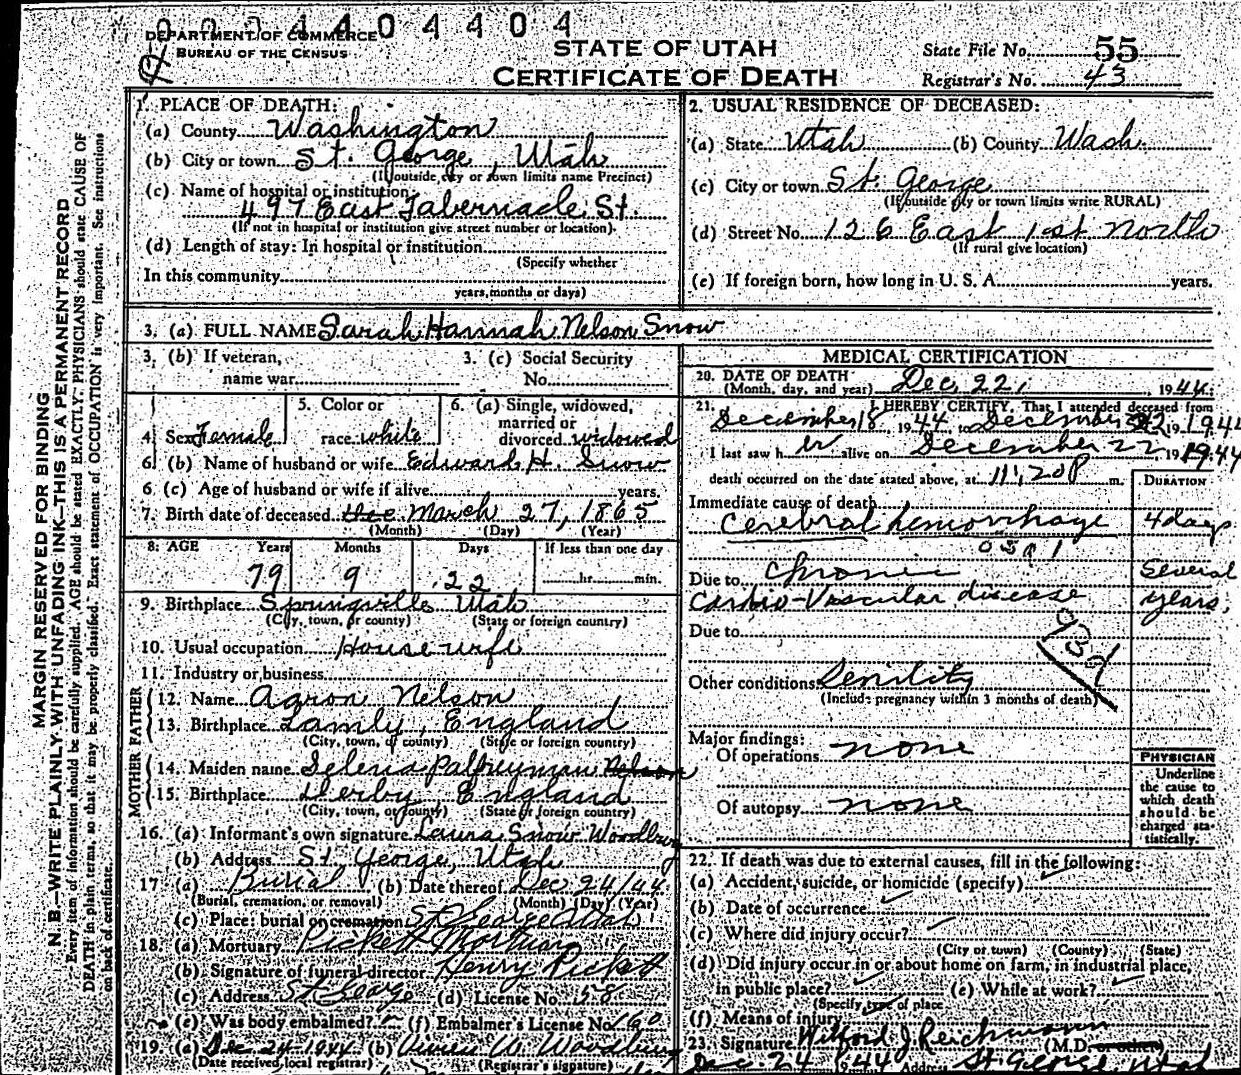 004404404
DEPARTMENT OF COMMERCE
BUREAU OF THE CENSUS
STATE OF UTAH
CERTIFICATE OF DEATH
State File No. 55
Registrar's No. 43
MARGIN RESERVED FOR BINDING
N. B.—WRITE PLAINLY WITH UNFADING INK—THIS IS A PERMANENT RECORD
Every item of information should be carefully supplied. AGE should be stated EXACTLY. PHYSICIANS should state CAUSE OF
DEATH in plain terms, so that it may be properly classified. Exact statement of OCCUPATION is very important. See instructions
on back of certificate.
1. PLACE OF DEATH:
(a) County Washington
(b) City or town St. George, Utah
(If outside city or town limits name Precinct)
(c) Name of hospital or institution:
497 East Tabernacle St.
(If not in hospital or institution give street number or location)
(d) Length of stay: In hospital or institution
(Specify whether
In this community
years, months or days)
2. USUAL RESIDENCE OF DECEASED:
(a) State Utah (b) County Wash.
(c) City or town St. George
(If outside city or town limits write RURAL)
(d) Street No. 126 East 1st North
(If rural give location)
(e) If foreign born, how long in U. S. A. years.
3. (a) FULL NAME Sarah Hannah Nelson Snow
3. (b) If veteran,
name war
3. (c) Social Security
No.
4. Sex Female
5. Color or
race white
6. (a) Single, widowed,
married or
divorced widowed
6. (b) Name of husband or wife Edward H. Snow
6 (c) Age of husband or wife if alive years.
7. Birth date of deceased Dec March 27, 1865
(Month) (Day) (Year)
8. AGE Years Months Days If less than one day
79 9 22 hr. min.
9. Birthplace Springville Utah
(City, town, or county) (State or foreign country)
10. Usual occupation Housewife
11. Industry or business
FATHER
12. Name Aaron Nelson
13. Birthplace Lamly, England
(City, town, or county) (State or foreign country)
MOTHER
14. Maiden name Selena Palfreyman Nelson
15. Birthplace Derby England
(City, town, or county) (State or foreign country)
16. (a) Informant's own signature Laura Snow Woodbury
(b) Address St. George, Utah
17 (a) Burial (b) Date thereof Dec 24/44
(Burial, cremation, or removal) (Month) (Day) (Year)
(c) Place: burial or cremation St George Utah
18. (a) Mortuary Pickett Mortuary
(b) Signature of funeral director Henry Pickett
(c) Address St George (d) License No. 58
(e) Was body embalmed? (f) Embalmer's License No. 160
19. (a) Dec 24 1944 (b) Woodbury
(Date received local registrar) (Registrar's signature)
MEDICAL CERTIFICATION
20. DATE OF DEATH
(Month, day, and year) Dec. 22, 1944
21. I HEREBY CERTIFY, That I attended deceased from
December 18 1944 to December 22 19 1944
I last saw her alive on December 22 19 1944
death occurred on the date stated above, at 11:20 P m.
DURATION
Immediate cause of death
Cerebral hemorrhage 4 days
Due to Chronic Several
Cardio-Vascular disease years.
Due to
93d
Other conditions Senility
(Include pregnancy within 3 months of death)
Major findings:
Of operations none
Of autopsy none
PHYSICIAN
Underline
the cause to
which death
should be
charged sta-
tistically.
22. If death was due to external causes, fill in the following:
(a) Accident, suicide, or homicide (specify)
(b) Date of occurrence
(c) Where did injury occur?
(City or town) (County) (State)
(d) Did injury occur in or about home on farm, in industrial place,
in public place? (e) While at work?
(Specify type of place
(f) Means of injury
23. Signature Wilford J. Reichmann (M.D.
Dec. 24 1944 Address St. George, Utah